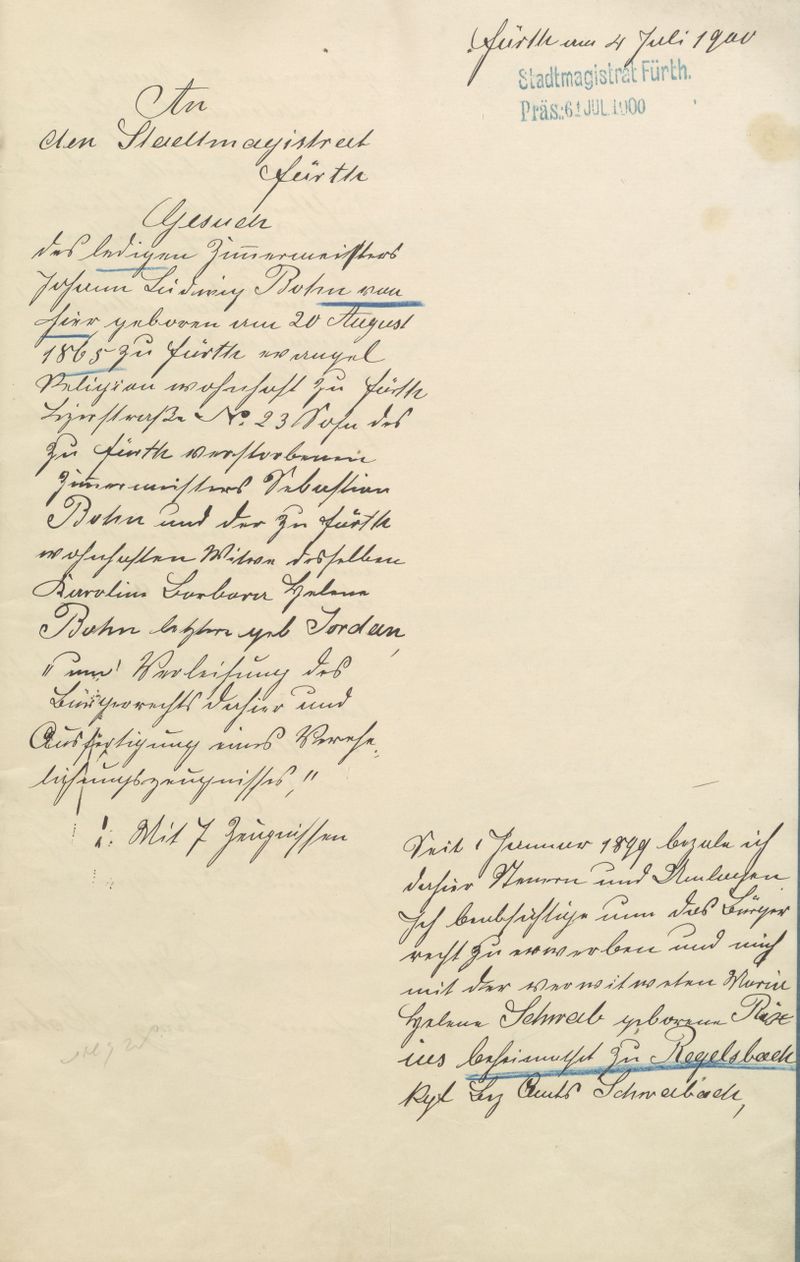 Fürth am 4 Juli 1900
Stadtmagistrat Fürth.
Präs. 6 JUL. 1900
An
den Stadtmagistrat
Fürth
Gesuch
des ledigen Zimmermeisters
Johann Ludwig Bohn von
hier, geboren am 20 August
1865 zu Fürth evangel
Religion wohnhaft zu Fürth
No. 23 Sohn des
zu Fürth verstorbenen
Zimmermeisters Sebastian
Bohn und der zu Fürth
wohnhaften Witwe desselben
Karolina Barbara Helene
Bohn letztere geb Jordan,
"um Verleihung des
Bürgerrechts dahier und
Ausfertigung eines Verehe-
lichungszeugnisses,"
Mit 7 Zeugnissen
Seit 1 Januar 1899 bezale ich
dahier Steuern und Umlagen
Ich beabsichtige nun das Bürger
recht zu erwerben und mich
mit der verwitweten Maria
Helene Schwab geborene
beheimathet zu Regelsbach
kgl Bez Amts Schwabach,